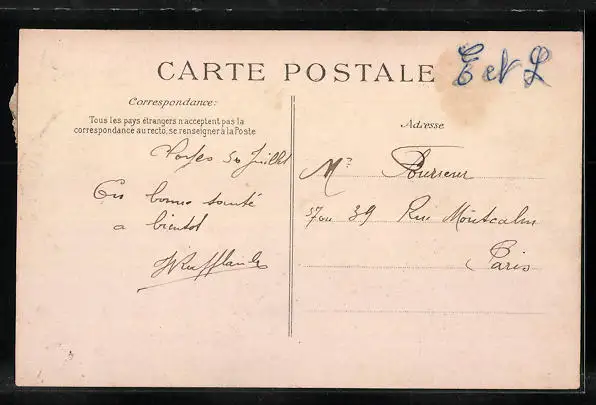 CARTE POSTALE
E et L
Correspondance:
Tous les pays étrangers n'acceptent pas la
correspondance au recto, se renseigner à la Poste
Juillet
En bonne santé
a bientot
Adresse
Mr Fourreur
37 ou 39 Rue Montcalm
Paris